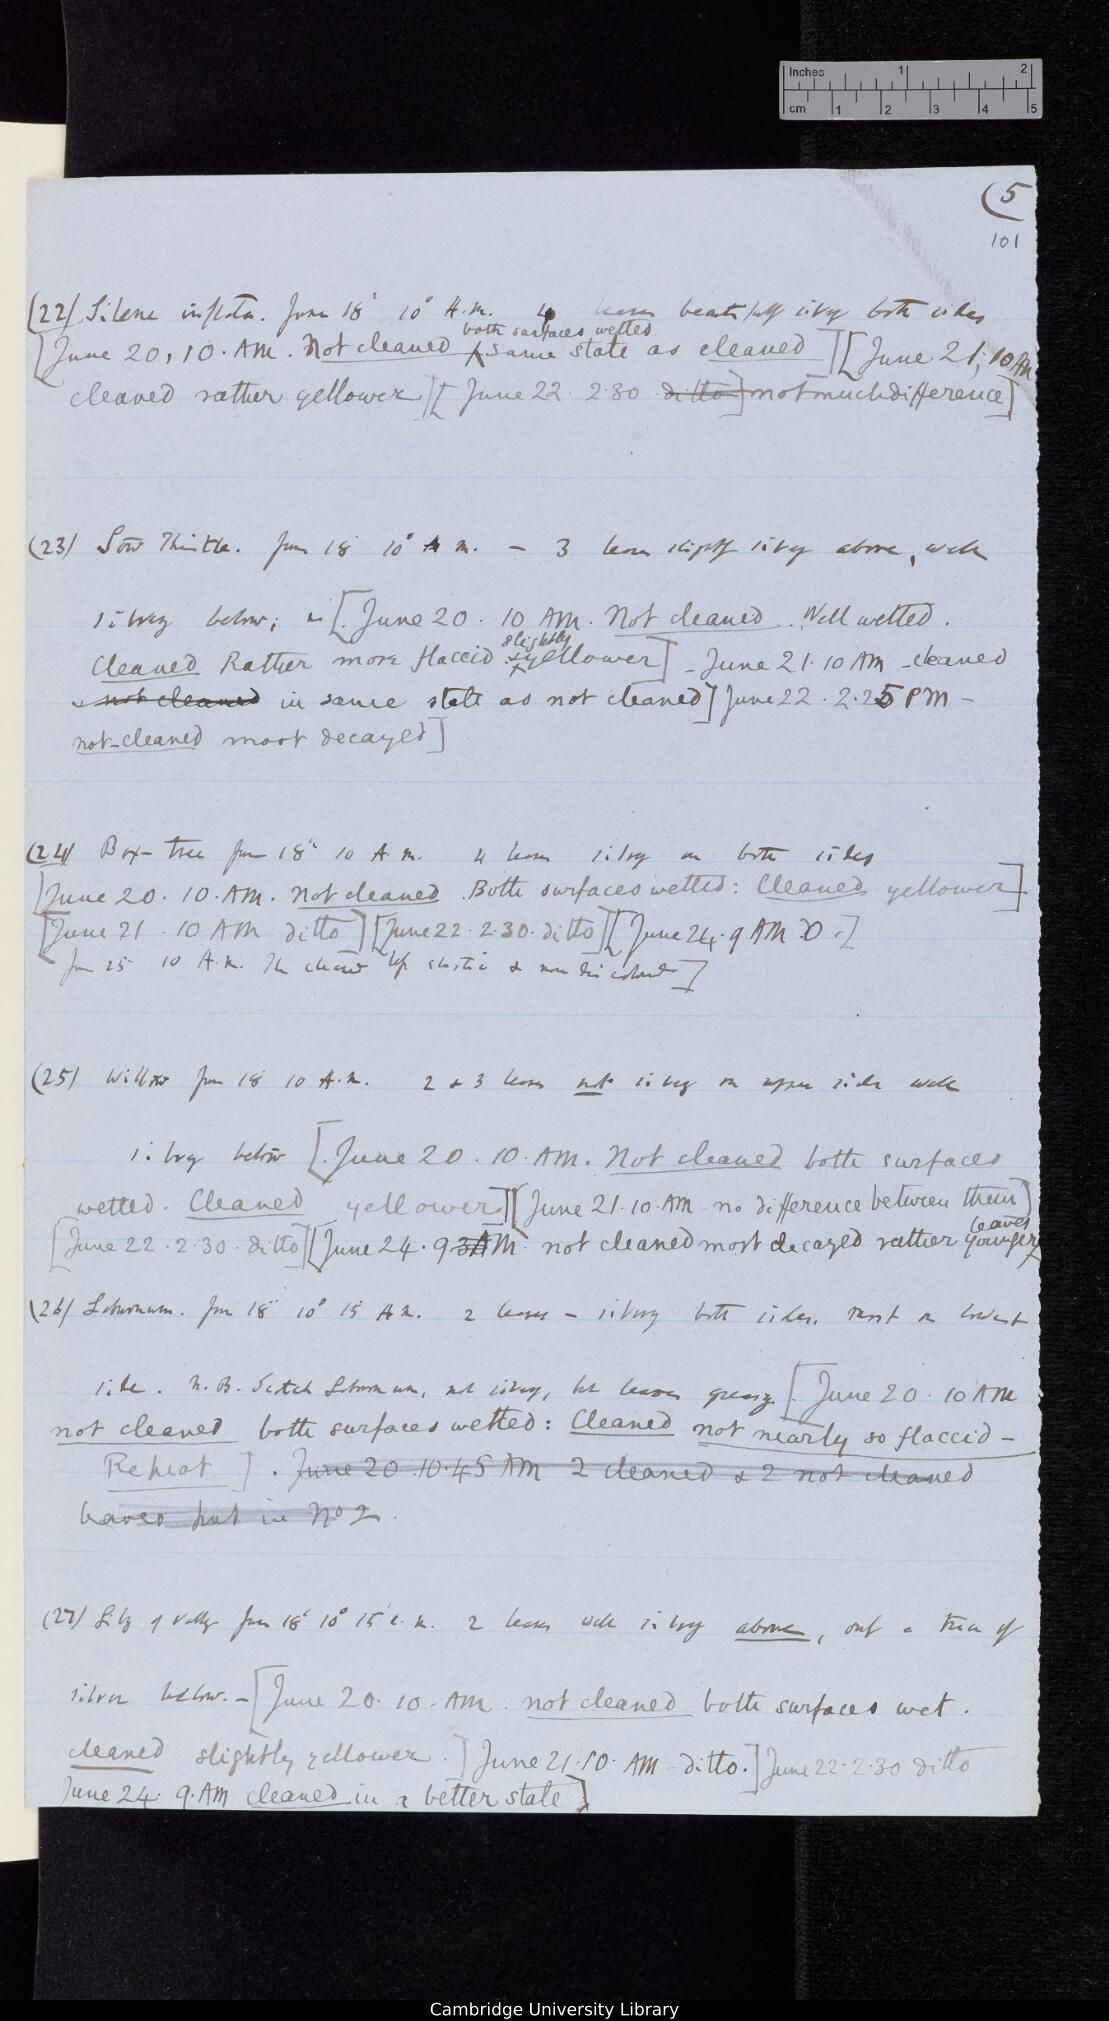 Inches 1 2
cm 1 2 3 4 5
(5
101
(22) Silene inflata. June 18' 10° A.m. 4 leaves beautifully silvery both sides
both surfaces wetted
[June 20, 10. AM. Not cleaned same state as cleaned] [June 21, 10 AM
cleaned rather yellower] [June 22. 2.30 ditto] not much difference]
(23) Sow Thistle. June 18 10° A m. — 3 leaves slightly silvery above, well
silvery below; [June 20. 10 AM. Not cleaned. Well wetted.
slightly
Cleaned Rather more flaccid & yellower] - June 21. 10 AM - cleaned
& not cleaned in same state as not cleaned] June 22. 2.25 PM -
not-cleaned most decayed]
(24) Box-tree June 18' 10 A.m. 4 leaves silvery on both sides
[June 20. 10. AM. Not cleaned. Both surfaces wetted: Cleaned yellower]
[June 21. 10 AM ditto] [June 22. 2.30. ditto] [June 24. 9 AM D.]
June 25 10 A.m. The cleaned elastic & more discoloured]
(25) Willow June 18 10 A.m. 2 & 3 leaves not silvery on upper side well
silvery below [June 20. 10. AM. Not cleaned both surfaces
wetted. Cleaned yellower] [June 21. 10. AM no difference between them]
leaves
[June 22. 2.30. ditto] [June 24. 9 3 AM. not cleaned most decayed rather younger
(26) Laburnum. June 18 10° 15 A m. 2 leaves — silvery both sides, most on lowest
side. N.B. Scotch Laburnum, not silvery, but leaves greasy [June 20. 10 AM
not cleaned both surfaces wetted: Cleaned not nearly so flaccid —
Repeat]. June 20. 10.45 AM 2 cleaned & 2 not cleaned
leaves put in No 2.
(27) Lily of Valley June 18' 10° 15' a.m. 2 leaves well silvery above, only a trace of
silver below. — [June 20. 10. AM. not cleaned both surfaces wet.
cleaned slightly yellower.] June 21. 10. AM ditto.] June 22. 2.30 ditto
June 24. 9. AM cleaned in a better state]
Cambridge University Library